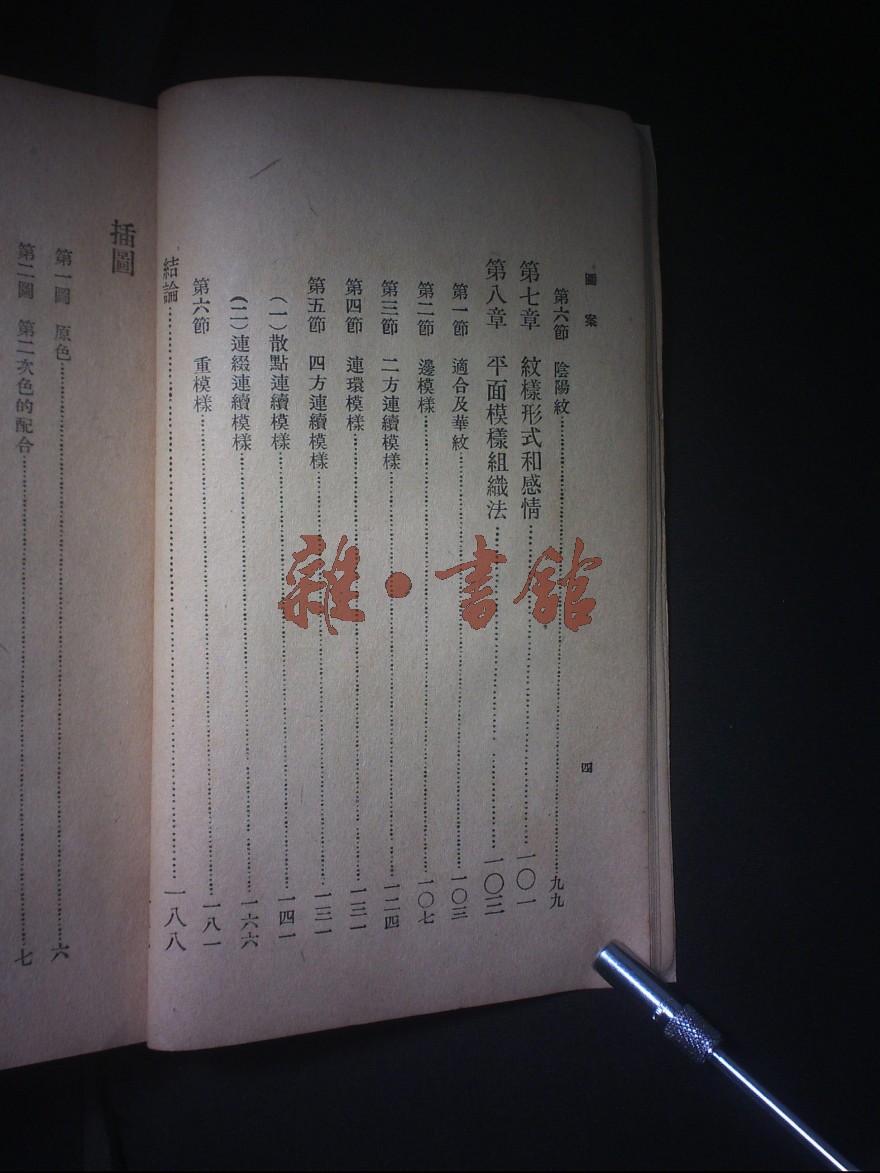 圖案
四
第六節 陰陽紋……九九
第七章 紋樣形式和感情……一〇一
第八章 平面模樣組織法……一〇三
第一節 適合及華紋……一〇三
第二節 邊模樣……一〇七
第三節 二方連續模樣……一二四
第四節 連環模樣……一三一
第五節 四方連續模樣……一三一
(一)散點連續模樣……一四一
(二)連綴連續模樣……一六六
第六節 重模樣……一八一
結論……一八八
插圖
第一圖 原色……六
第二圖 第二次色的配合……七
雜·書館